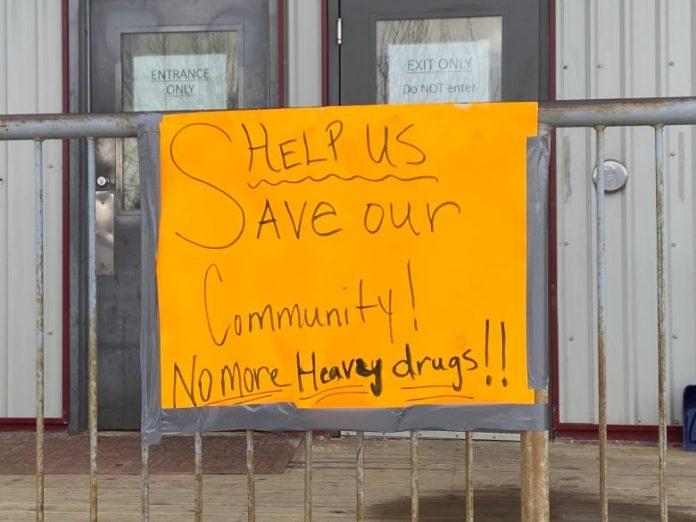 ENTRANCE
ONLY
EXIT ONLY
Do NOT enter
HELP US
SAve our
Community!
No more Heavy drugs!!